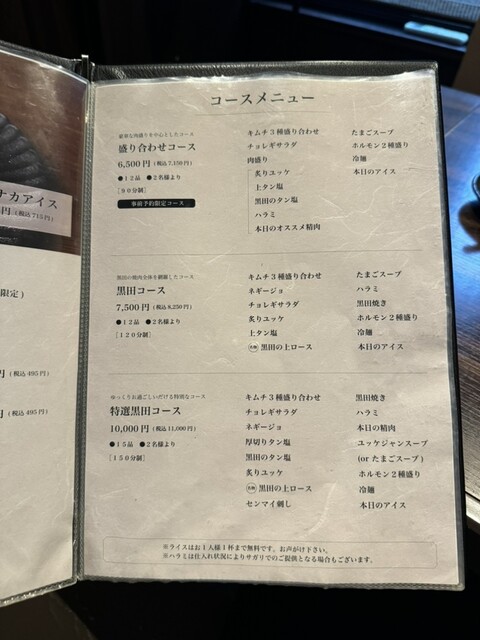 コースメニュー
豪華な肉盛りを中心としたコース
盛り合わせコース
6,500円（税込7,150円）
●１２品 ●２名様より
［９０分制］
事前予約限定コース
キムチ３種盛り合わせ
チョレギサラダ
肉盛り
炙りユッケ
上タン塩
黒田のタン塩
ハラミ
本日のオススメ精肉
たまごスープ
ホルモン２種盛り
冷麺
本日のアイス
黒田の焼肉全体を網羅したコース
黒田コース
7,500円（税込8,250円）
●１２品 ●２名様より
［１２０分制］
キムチ３種盛り合わせ
ネギージョ
チョレギサラダ
炙りユッケ
上タン塩
黒田の上ロース
たまごスープ
ハラミ
黒田焼き
ホルモン２種盛り
冷麺
本日のアイス
ゆっくりお過ごしいただける特別なコース
特選黒田コース
10,000円（税込11,000円）
●１５品 ●２名様より
［１５０分制］
キムチ３種盛り合わせ
チョレギサラダ
ネギージョ
厚切りタン塩
黒田のタン塩
炙りユッケ
黒田の上ロース
センマイ刺し
黒田焼き
ハラミ
本日の精肉
ユッケジャンスープ
(or たまごスープ)
ホルモン２種盛り
冷麺
本日のアイス
※ライスはお１人様１杯まで無料です。お声がけ下さい。
※ハラミは仕入れ状況によりサガリでのご提供となる場合もございます。
ナカアイス
円（税込715円）
限定）
円（税込495円）
円（税込495円）